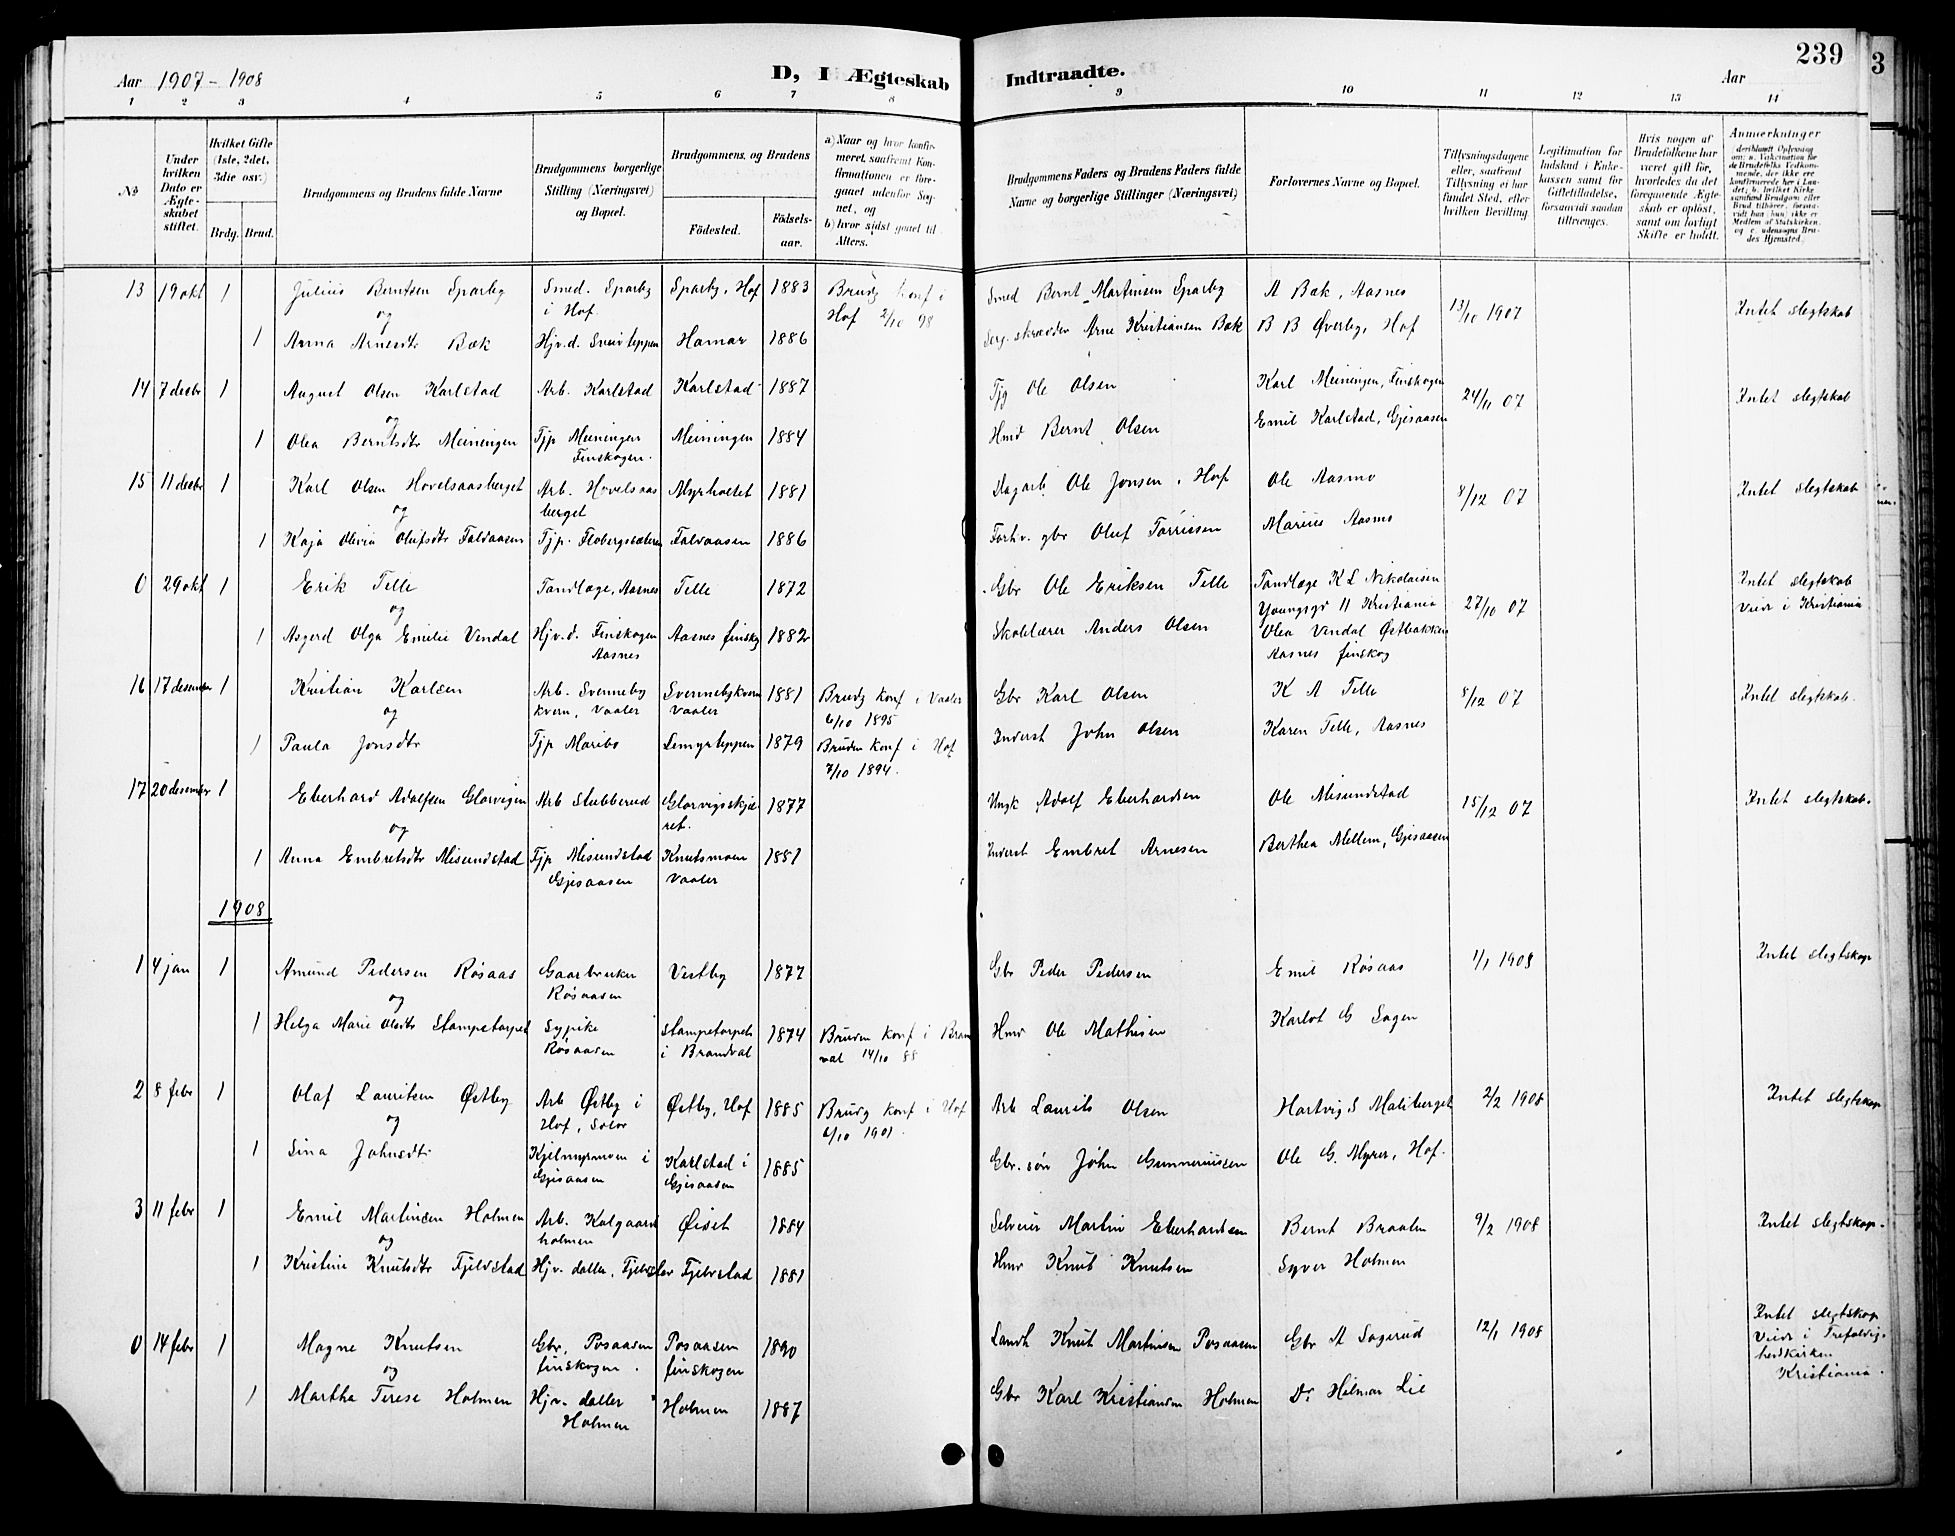 239
3
Aar 1907 - 1908
D, I Ægteskab Indtraadte.
Aar
1 2 3 4 5 6 7 8 9 10 11 12 13 14
No
Under hvilken Dato er Ægteskabet stiftet.
Hvilket Gifte (1ste, 2det, 3die osv.)
Brdg. Brud.
Brudgommens og Brudens fulde Navne
Brudgommens borgerlige Stilling (Næringsvei) og Bopæl.
Brudgommens og Brudens
Födested.
Födselsaar.
a) Naar og hvor konfirmeret, saafremt Konfirmationen er foregaaet udenfor Sognet, og
b) hvor sidst gaaet til Alters.
Brudgommens Faders og Brudens Faders fulde Navne og borgerlige Stillinger (Næringsvei)
Forlovernes Navne og Bopæl.
Tillysningsdagene eller, saafremt Tillysning ei har fundet Sted, efter hvilken Bevilling.
Legitimation for Indskud i Enkekassen samt for Giftetilladelse, forsaavidt saadan tiltrænges.
Hvis nogen af Brudefolkene har været gift før, hvorledes da det foregaaende Ægteskab er opløst, samt om lovligt Skifte er holdt.
Anmærkninger
13 19 okt 1 Julius Berntsen Sparby Smed. Sparby i Hof. Sparby, Hof 1883 Brudg konf i Hof 2/10 98 Smed Bernt Martinsen Sparby A Bæk, Aasnes 13/10 1907 Intet slegtskab
og
1 Anna Arnesdtr Bæk Hjv.d. Hamar 1886 skrædder Arne Kristiansen Bæk B B Øverby, Hof
14 7 desbr 1 August Olsen Karlstad Arb. Karlstad Karlstad 1887 Ole Olsen Karl Meiningen, Finskogen 24/11 07 Intet slegtskab
og
1 Olea Berntsdtr Meiningen Tjp Meiningen Finskogen. Meiningen 1884 Hmd Bernt Olsen Emil Karlstad, Gjesaasen
15 11 desbr 1 Karl Olsen Hovelsaasberget Arb. Hovelsaasberget Myrholtet 1881 Dagarb Ole Jonsen, Hof Ole Aasmo 8/12 07 Intet slegtskab
og
1 Kaja Olivia Olufsdtr Falvaasen Tjp. Flobergsæteren Falvaasen 1886 Forhv. gbr Oluf Torrissen Marius Aasmo
0 29 okt 1 Erik Telle Tandlæge, Aasnes Telle 1872 Gbr Ole Eriksen Telle Tandlæge K L Nikolaisen Youngsgd 11 Kristiania 27/10 07 Intet slegtskab Viede i Kristiania
og
1 Asgerd Olga Emelie Vendal Hjv.d. Finskogen Aasnes Aasnes finskog 1882 Skolelærer Anders Olsen Olea Vendal Østbakken Aasnes finskog
16 17 desember 1 Kristian Karlsen Arb. Svennebykvern, Vaaler Svennebykvern Vaaler 1881 Brudg konf i Vaaler 6/10 1895 Gbr Karl Olsen K A Telle 8/12 07 Intet slegtskab.
og
1 Paula Jonsdtr Tjp Maribo Lemyrteppen 1879 Bruden konf i Hof 7/10 1894. Inderst John Olsen Karen Telle, Aasnes
17 20 desember 1 Eberhard Adolfsen Glorvigen Arb Stubberud Glorvigsskjæret. 1877 Ungk Adolf Eberhardsen Ole Misundstad 15/12 07 Intet slegtskab.
og
1 Anna Embretsdtr Misundstad Tjp Misundstad Gjesaasen Knutsmoen Vaaler 1881 Inderst Embret Arnesen Berthea Mellem, Gjesaasen
1908
1 4 jan 1 Amund Pedersen Røsaas Gaarbruker Røsaasen Vestby 1877 Gbr Peder Pedersen Emil Røsaas 1/1 1908 Intet slegtskap
og
1 Helga Marie Olsdtr Stampetorpet Sypike Røsaasen Stampetorpet i Brandval 1874 Bruden konf i Branval 14/10 88 Hmd Ole Mathisen Karlot G Sagen
2 8 febr 1 Olaf Lauritsen Østby Arb Østby i Hof, Solør Østby, Hof 1885 Brudg konf i Hof 6/10 1901. Arb Laurits Olsen Hartvig S Maliberget 2/2 1908 Intet slegtskap
og
1 Sina Johnsdtr Kjelmyrmoen i Gjesaasen Karlstad i Gjesaasen 1885 Gbr.søn John Gunneriussen Ole G. Myrer, Hof.
3 11 febr 1 Emil Martinsen Holmen Arb. Kalgaardholmen Øiset 1884 Selveier Martin Eberhardsen Bernt Braaten 9/2 1908 Intet slegtskap.
og
1 Kristine Knutsdtr Fjeldstad Hjv. datter, Fjeldstad Fjeldstad 1881 Hmd Knut Knutsen Syver Holmen
0 14 febr 1 Magne Knutsen Gbr, Posaasen finskogen. Posaasen finskogen 1890 Landh Knut Martinsen Posaasen Gbr A Sagerud 12/1 1908 Intet slegtskap Viede i Trefoldighedskirken Kristiania.
og
1 Martha Terese Holmen Hjv. datter Holmen Holmen 1887 Gbr Karl Kristiansen Holmen Dr Hilmar Lie